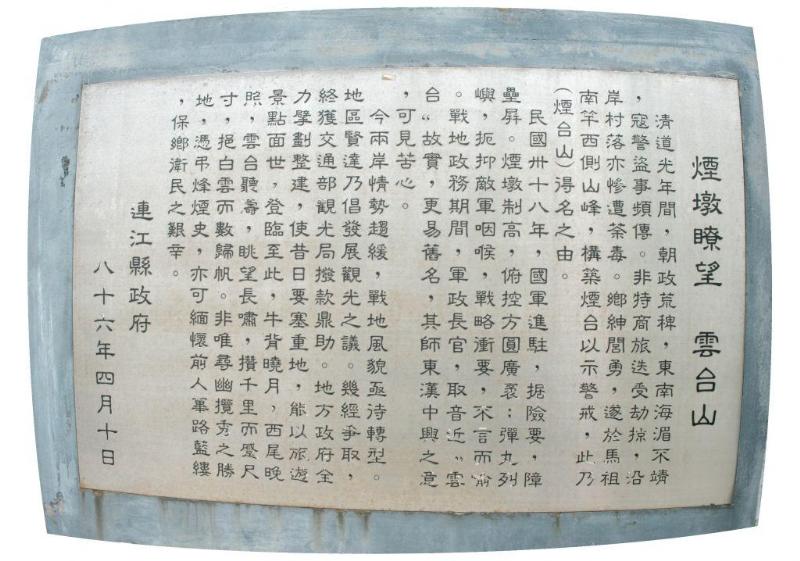 煙墩瞭望　雲台山
清道光年間，朝政荒稗，東南海湄不靖
，寇警盜事頻傳。非特商旅迭受劫掠，沿
岸村落亦慘遭荼毒。鄉紳閭勇，遂於馬祖
南竿西側山峰，構築煙台以示警戒，此乃
(煙台山)得名之由。
民國卅十八年，國軍進駐，据險要，障
壘屏。煙墩制高，俯控方圓廣袤；彈丸列
嶼，扼抑敵軍咽喉，戰略衝要，不言而喻
。戰地政務期間，軍政長官，取音近“雲
台”故實，更易舊名，其師東漢中興之意
，可見苦心。
今兩岸情勢趨緩，戰地風貌亟待轉型。
地區賢達乃倡發展觀光之議。幾經爭取，
終獲交通部觀光局撥款鼎助。地方政府全
力擘劃整建，使昔日要塞重地，能以旅遊
景點面世，登臨至此，牛背曉月，西尾晚
照，雲台聽濤，眺望長嘯，攢千里而蹙尺
寸，挹白雲而數歸帆。非唯尋幽攬秀之勝
地，憑弔烽煙史，亦可緬懷前人篳路藍縷
，保鄉衛民之艱辛。
連江縣政府
八十六年四月十日